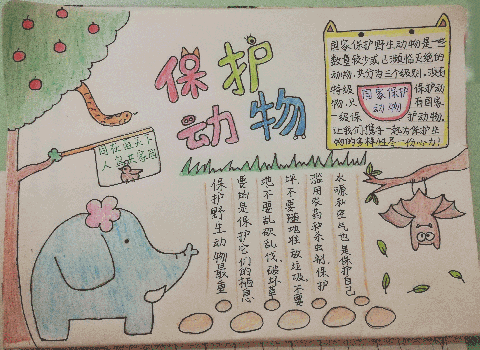 保护
动物
国家保护野生动物是一些
数量较少或已濒临灭绝的
动物,共分为三个级别,没有
特级保护动
物,只有国家
一级保护动物,
让我们携手一起为保护生
物的多样性尽一份心力!
国家保护
动物
保护野生动物最重
要的是保护它们的栖息
地不要乱砍乱伐,破坏草
坪,不要随地堆放垃圾,不要
滥用农药和杀虫剂,保护
水源和空气也是保护自己